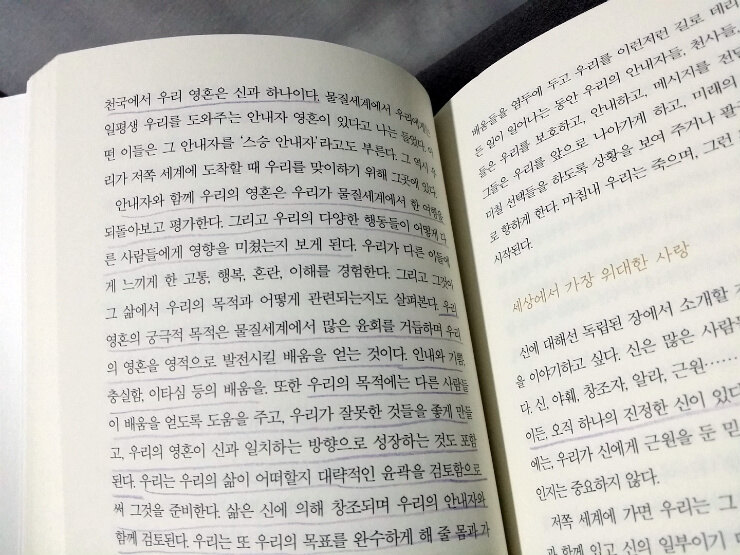 천국에서 우리 영혼은 신과 하나이다. 물질세계에서 우리에게는
일평생 우리를 도와주는 안내자 영혼이 있다고 나는 들었다. 어
떤 이들은 그 안내자를 '스승 안내자'라고도 부른다. 그 역시 우
리가 저쪽 세계에 도착할 때 우리를 맞이하기 위해 그곳에 있다.
안내자와 함께 우리의 영혼은 우리가 물질세계에서 한 여행을
되돌아보고 평가한다. 그리고 우리의 다양한 행동들이 어떻게 다
른 사람들에게 영향을 미쳤는지 보게 된다. 우리가 다른 이들에
게 느끼게 한 고통, 행복, 혼란, 이해를 경험한다. 그리고 그것이
그 삶에서 우리의 목적과 어떻게 관련되는지도 살펴본다. 우리
영혼의 궁극적 목적은 물질세계에서 많은 윤회를 거듭하며 우리
의 영혼을 영적으로 발전시킬 배움을 얻는 것이다. 인내와 기쁨,
충실함, 이타심 등의 배움을. 또한 우리의 목적에는 다른 사람들
이 배움을 얻도록 도움을 주고, 우리가 잘못한 것들을 좋게 만들
고, 우리의 영혼이 신과 일치하는 방향으로 성장하는 것도 포함
된다. 우리는 우리의 삶이 어떠할지 대략적인 윤곽을 검토함으로
써 그것을 준비한다. 삶은 신에 의해 창조되며 우리의 안내자와
함께 검토된다. 우리는 또 우리의 목표를 완수하게 해 줄 몸과 가
배움들을 염두에 두고 우리를 이런저런 길로 데리
든 일이 일어나는 동안 우리의 안내자들, 천사들,
들은 우리를 보호하고, 안내하고, 메시지를 전달
그들은 우리를 앞으로 나아가게 하고, 미래의
미칠 선택들을 하도록 상황을 보여 주거나 팔
로 향하게 한다. 마침내 우리는 죽으며, 그런
시작된다.
세상에서 가장 위대한 사랑
신에 대해선 독립된 장에서 소개할
을 이야기하고 싶다. 신은 많은 사람
다. 신, 야훼, 창조자, 알라, 근원……
이든, 오직 하나의 진정한 신이 있다
에는, 우리가 신에게 근원을 둔 믿
인지는 중요하지 않다.
저쪽 세계에 가면 우리는 그
과 함께 있고 신의 일부이기